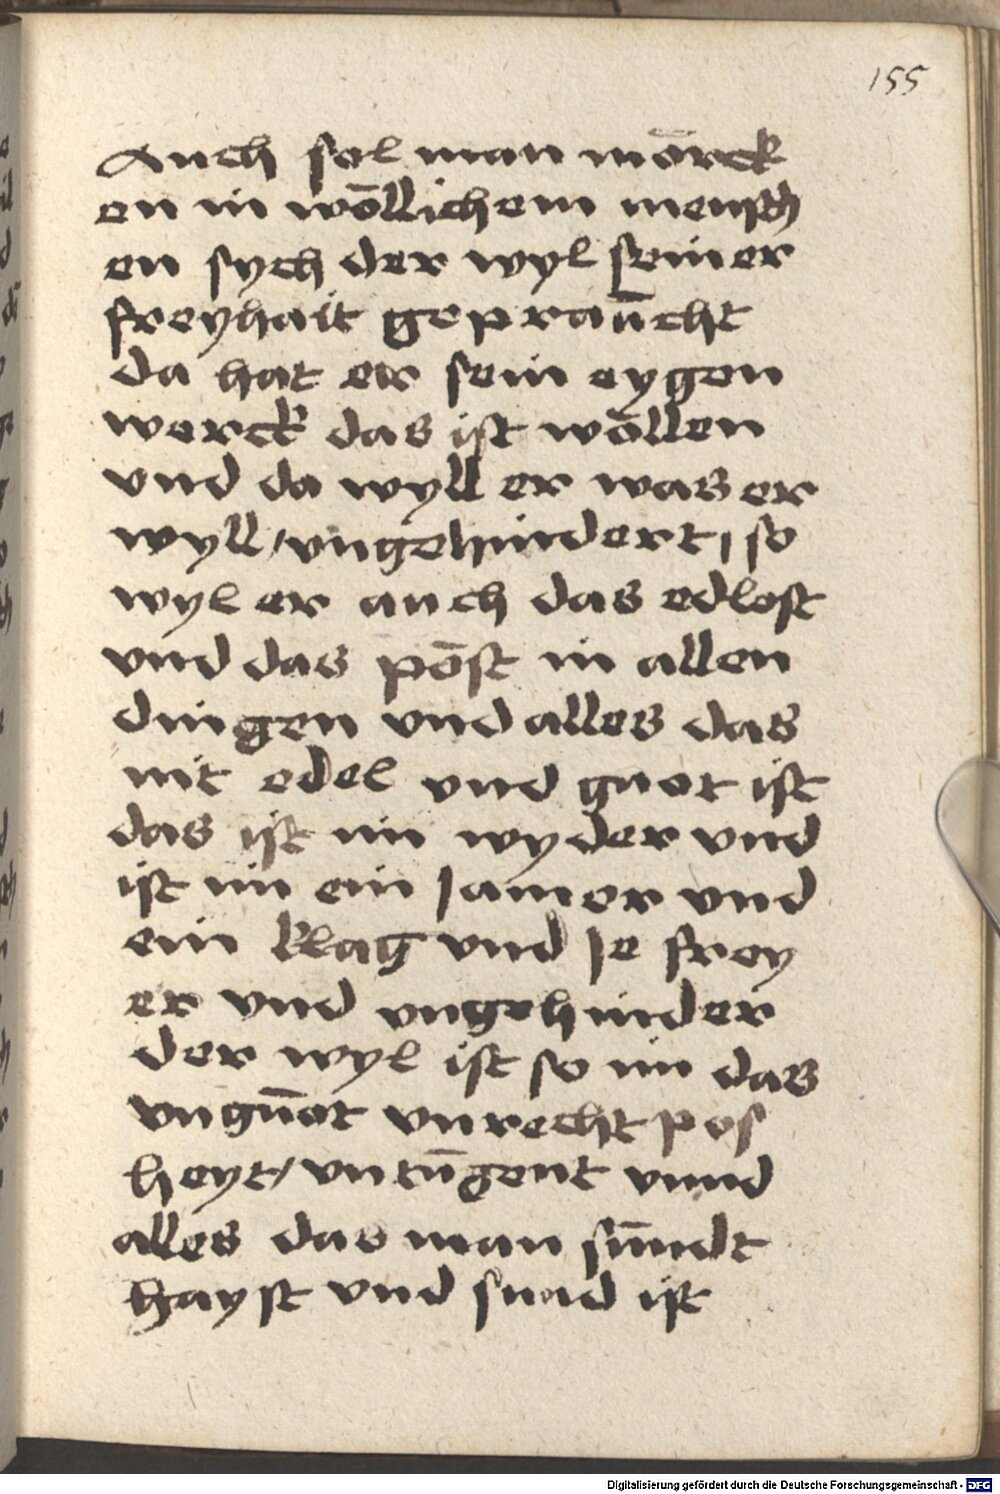 155
Auch sol man mo̅rck
en in wo̅llichem mensch
en sych der wyl seiner
freyhait gepraūcht
da hat er sein eygen
werck das ist wo̅llen
vnd da wyll er was er
wyll / vngehindert / so
wyl er auch das edlest
vnd das po̅st in allen
dingen vnd alles das
nit edel vnd guot ist
das ist im wyder vnd
ist im ein Jamer vnd
ein klag vnd Je frey
er vnd vngehinder
der wyl ist so im das
vngūot vnrecht pos
heyt / vntūgent vnnd
alles das man sūndt
hayst vnd sund ist
Digitalisierung gefördert durch die Deutsche Forschungsgemeinschaft - DFG